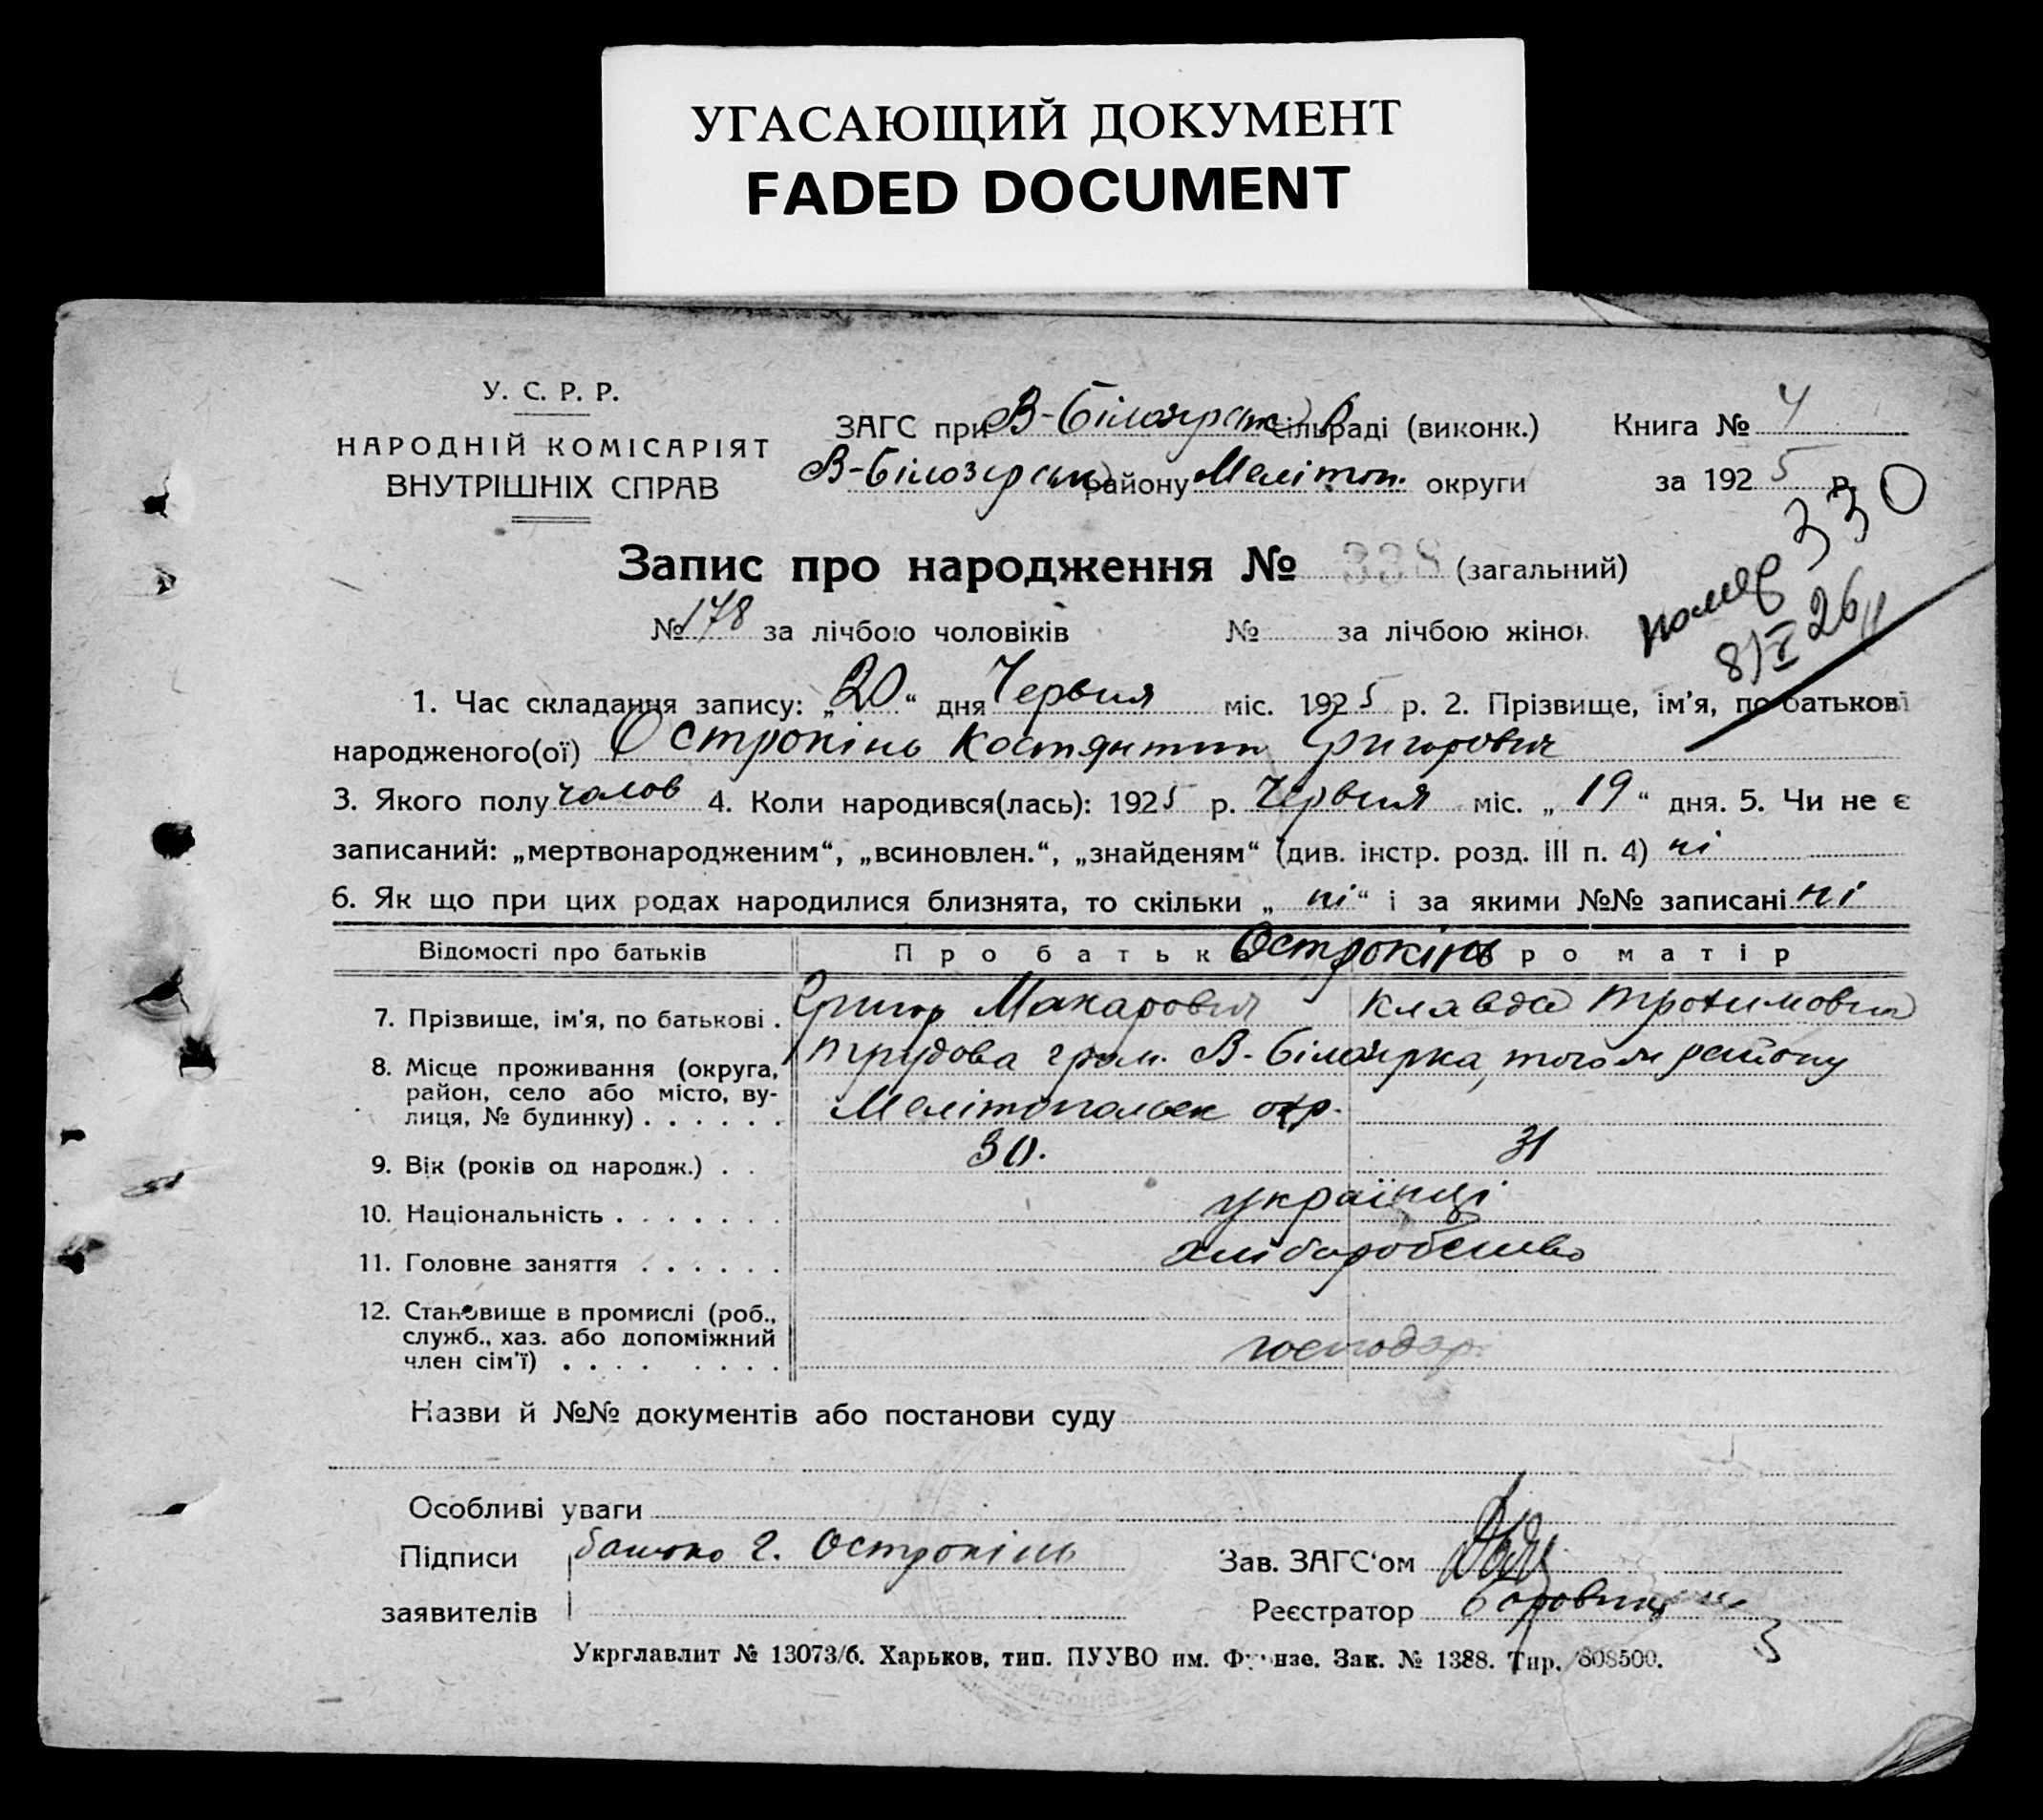 УГАСАЮЩИЙ ДОКУМЕНТ
FADED DOCUMENT
У. С. Р. Р.
НАРОДНІЙ КОМІСАРІЯТ
ВНУТРІШНІХ СПРАВ
ЗАГС при В-Білозірськ сільраді (виконк.)
В-Білозірськ району Мелітоп. округи
Книга № 4
за 1925 р.
330
Запис про народження № 338 (загальний)
помер 8/V 26
№ 178 за лічбою чоловіків № за лічбою жінок
1. Час складання запису: „20“ дня Червня міс. 1925 р. 2. Прізвище, ім'я, по батькові
народженого(ої) Острокінь Костянтин Григорович
3. Якого полу чолов 4. Коли народився(лась): 1925 р. Червня міс. „19“ дня. 5. Чи не є
записаний: „мертвонародженим“, „всиновлен.“, „знайденям“ (див. інстр. розд. III п. 4) ні
6. Як що при цих родах народилися близнята, то скільки „ні“ і за якими №№ записані ні
Відомості про батьків Про батьк Острокінь ро матір
7. Прізвище, ім'я, по батькові . Григор Макарович Клавда Трохимовна
8. Місце проживання (округа, Трудова гром. В-Білозірка, того ж району
район, село або місто, ву-
лиця, № будинку) . . . . . . Мелітопольск окр.
9. Вік (років од народж.) . . 30. 31
10. Національність . . . . . . . українці
11. Головне заняття . . . . . . хліборобство
12. Становище в промислі (роб.,
служб., хаз. або допоміжний
член сім'ї) . . . . . . . . господар.
Назви й №№ документів або постанови суду
Особливі уваги
Підписи батько Г. Острокінь Зав. ЗАГС'ом
заявителів Реєстратор
Укрглавлит № 13073/б. Харьков, тип. ПУУВО им. Фрунзе. Зак. № 1388. Тир. 808500.